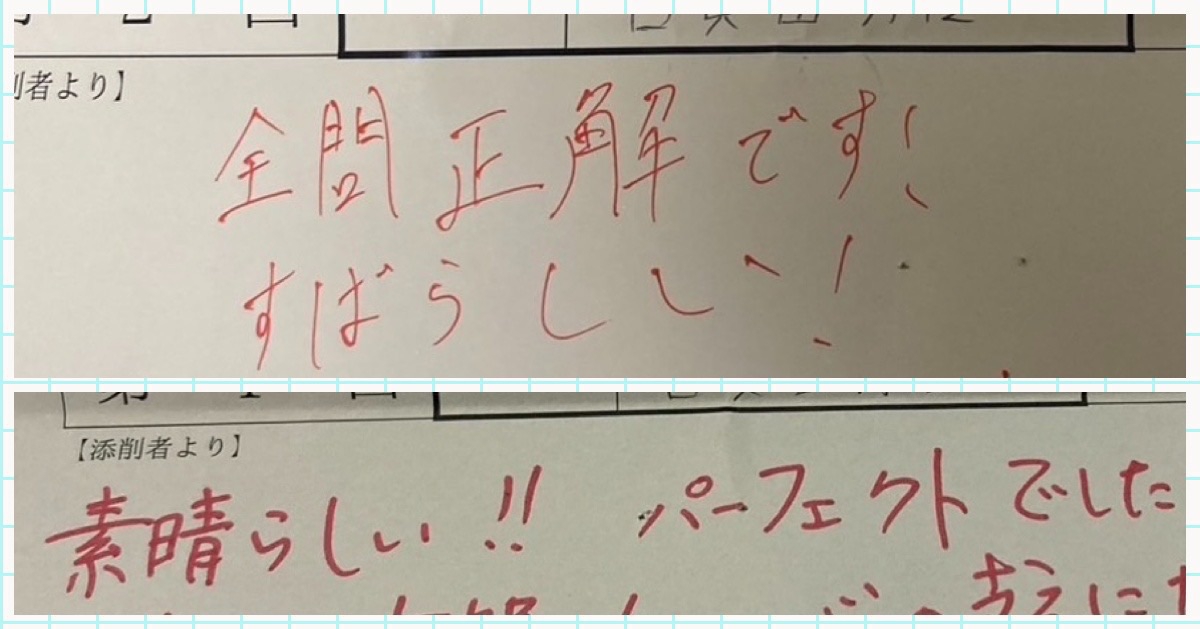 削者より】
全問正解です!
すばらしい!
【添削者より】
素晴らしい!! パーフェクトでした